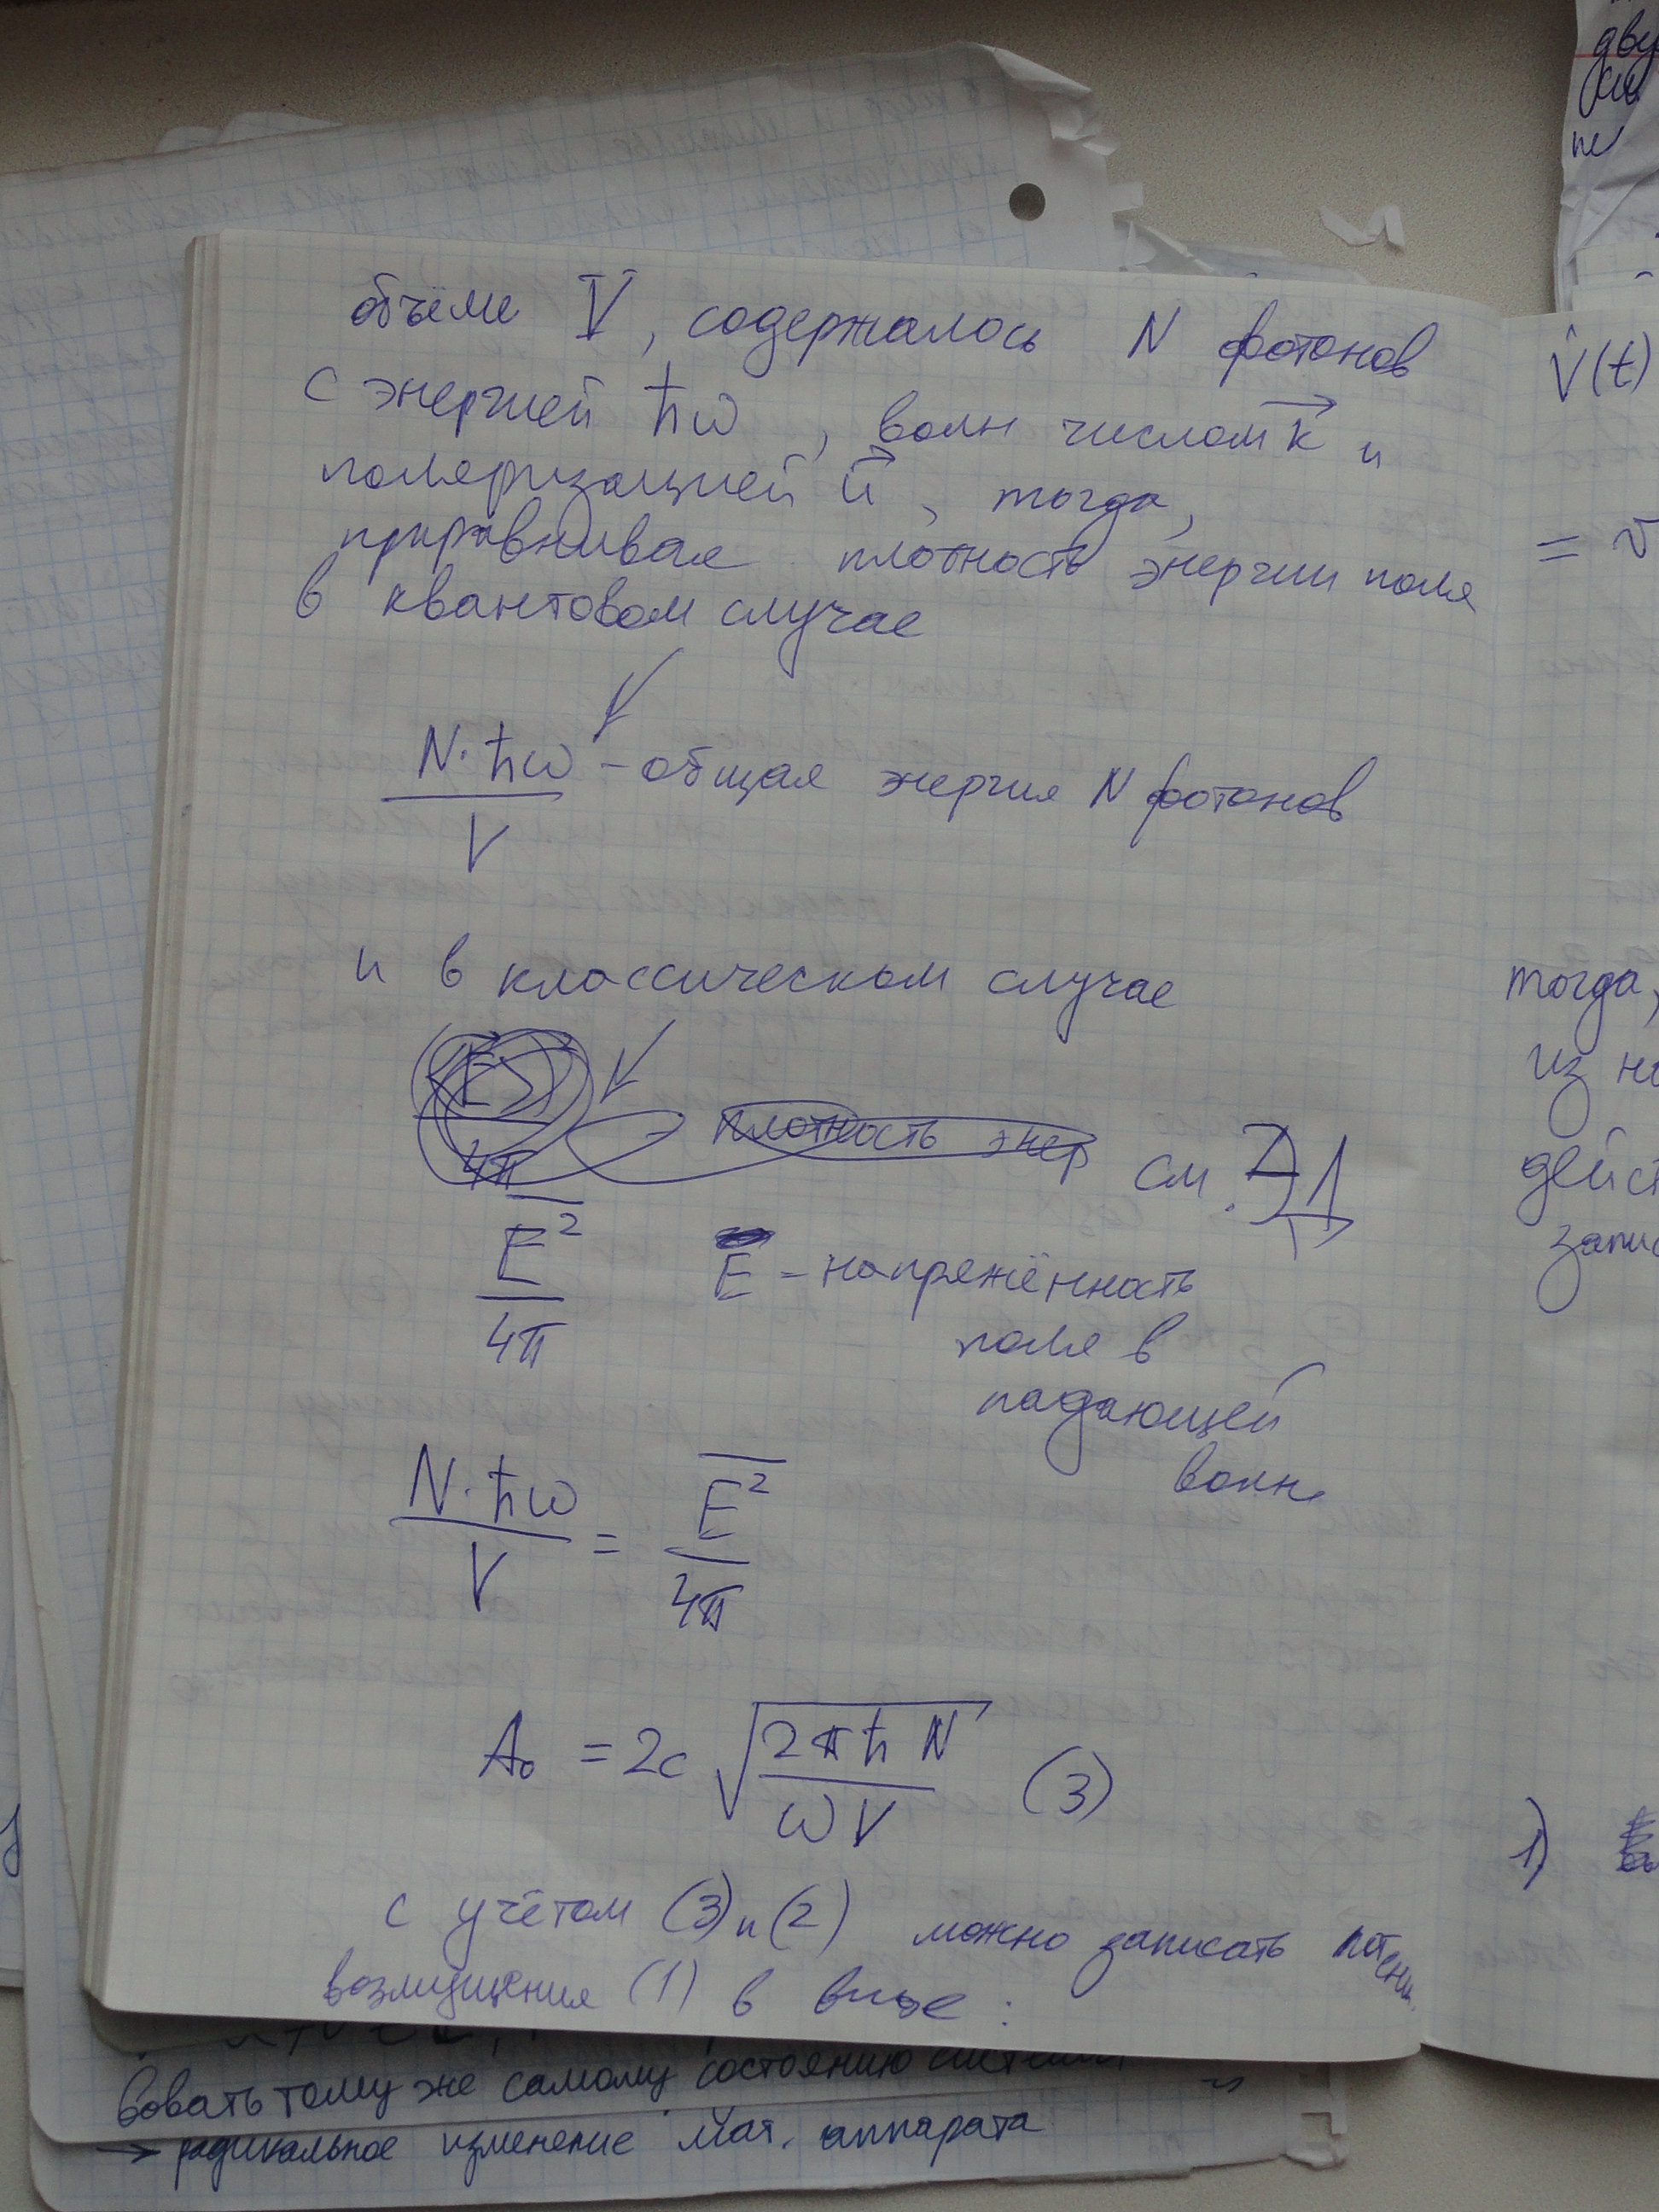 объёме V, содержалось N фотонов
с энергией ħω, волн числом k⃗ и
поляризацией u⃗, тогда,
приравнивая плотность энергии поля
в квантовом случае
N·ħω / V – общая энергия N фотонов
и в классическом случае
4π
плотность энер
см. ЭД
E² / 4π
E – напряжённость
поля в
падающей
волн
N·ħω / V = E̅² / 4π
A₀ = 2c √(2πħN / ωV) (3)
с учётом (3) и (2) можно записать потенц.
возмущения (1) в виде:
вовать тому же самому состоянию системы
→ радикальное изменение мат. аппарата
V̂(t)
=
тогда,
из
дейст
запис
1)
дву